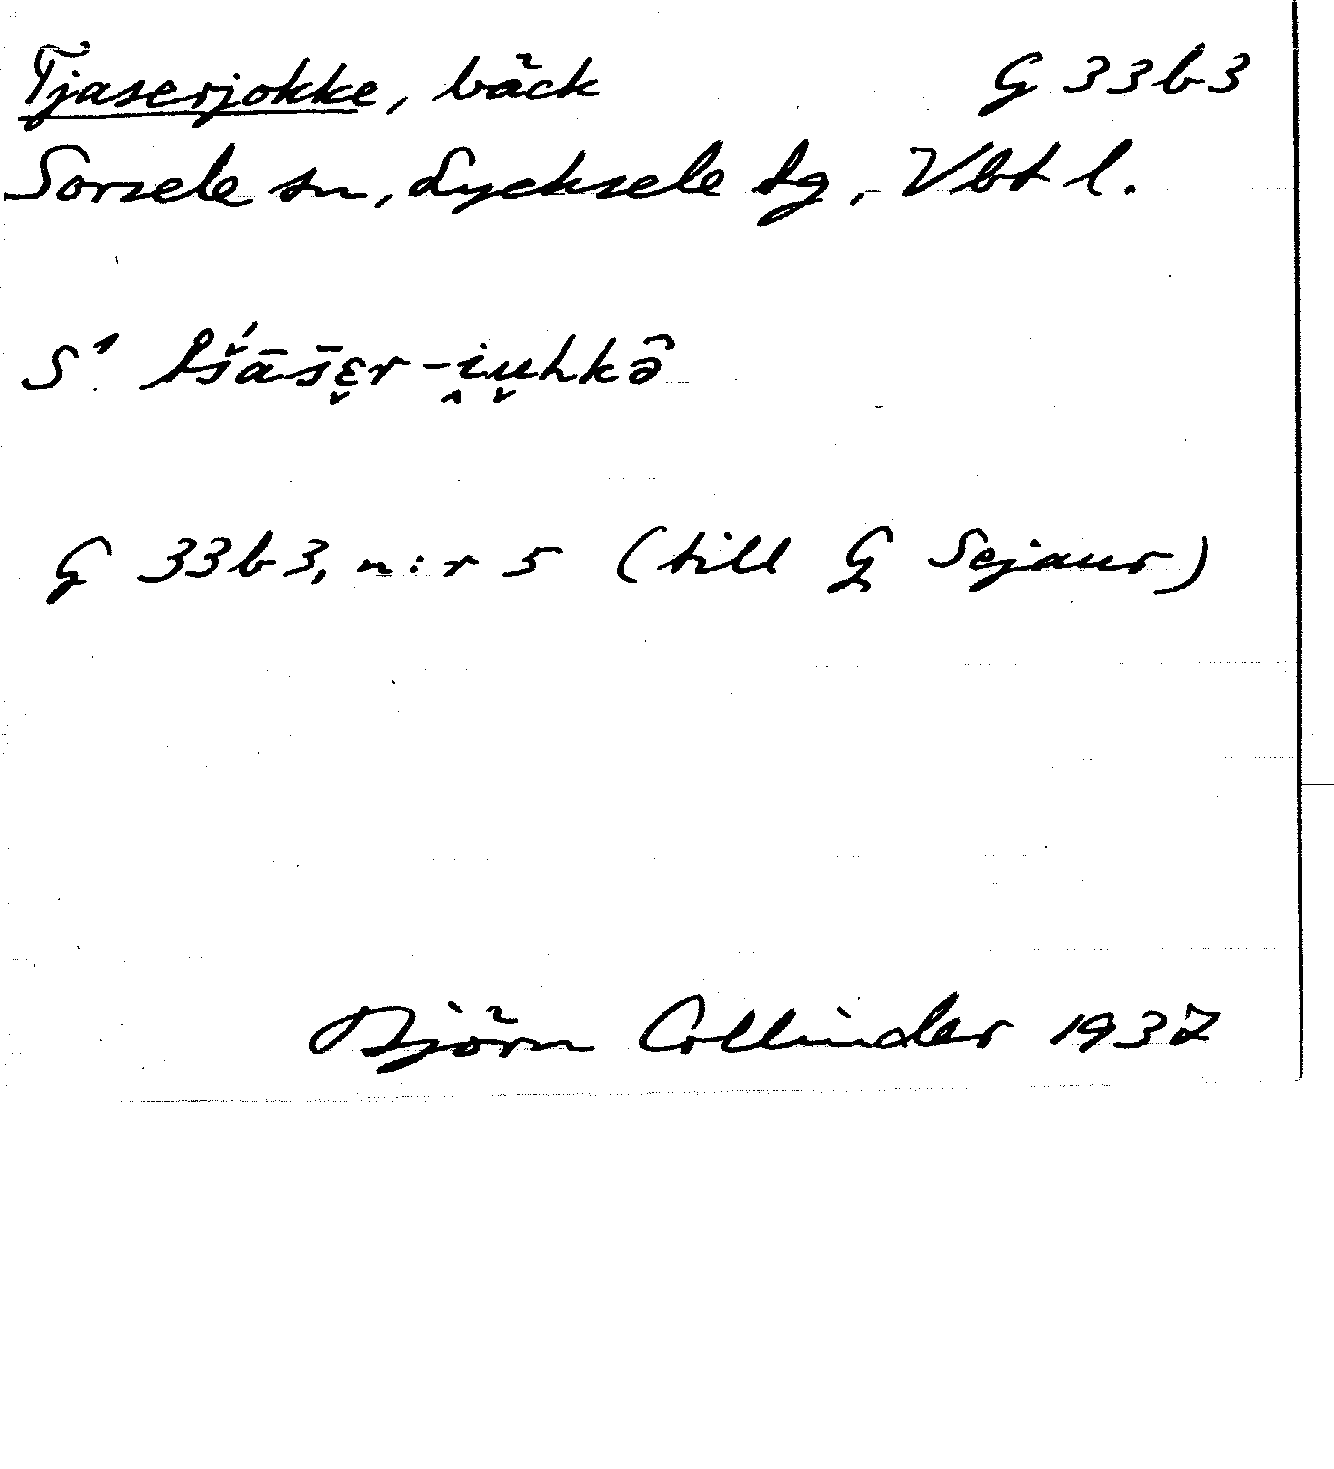 Tjaserjokke, bäck G 33b3
Sorsele sn, Lycksele tg, Vbt l.
S¹
G 33b3, n:r 5 (till G Sejaur)
Björn Collinder 1937